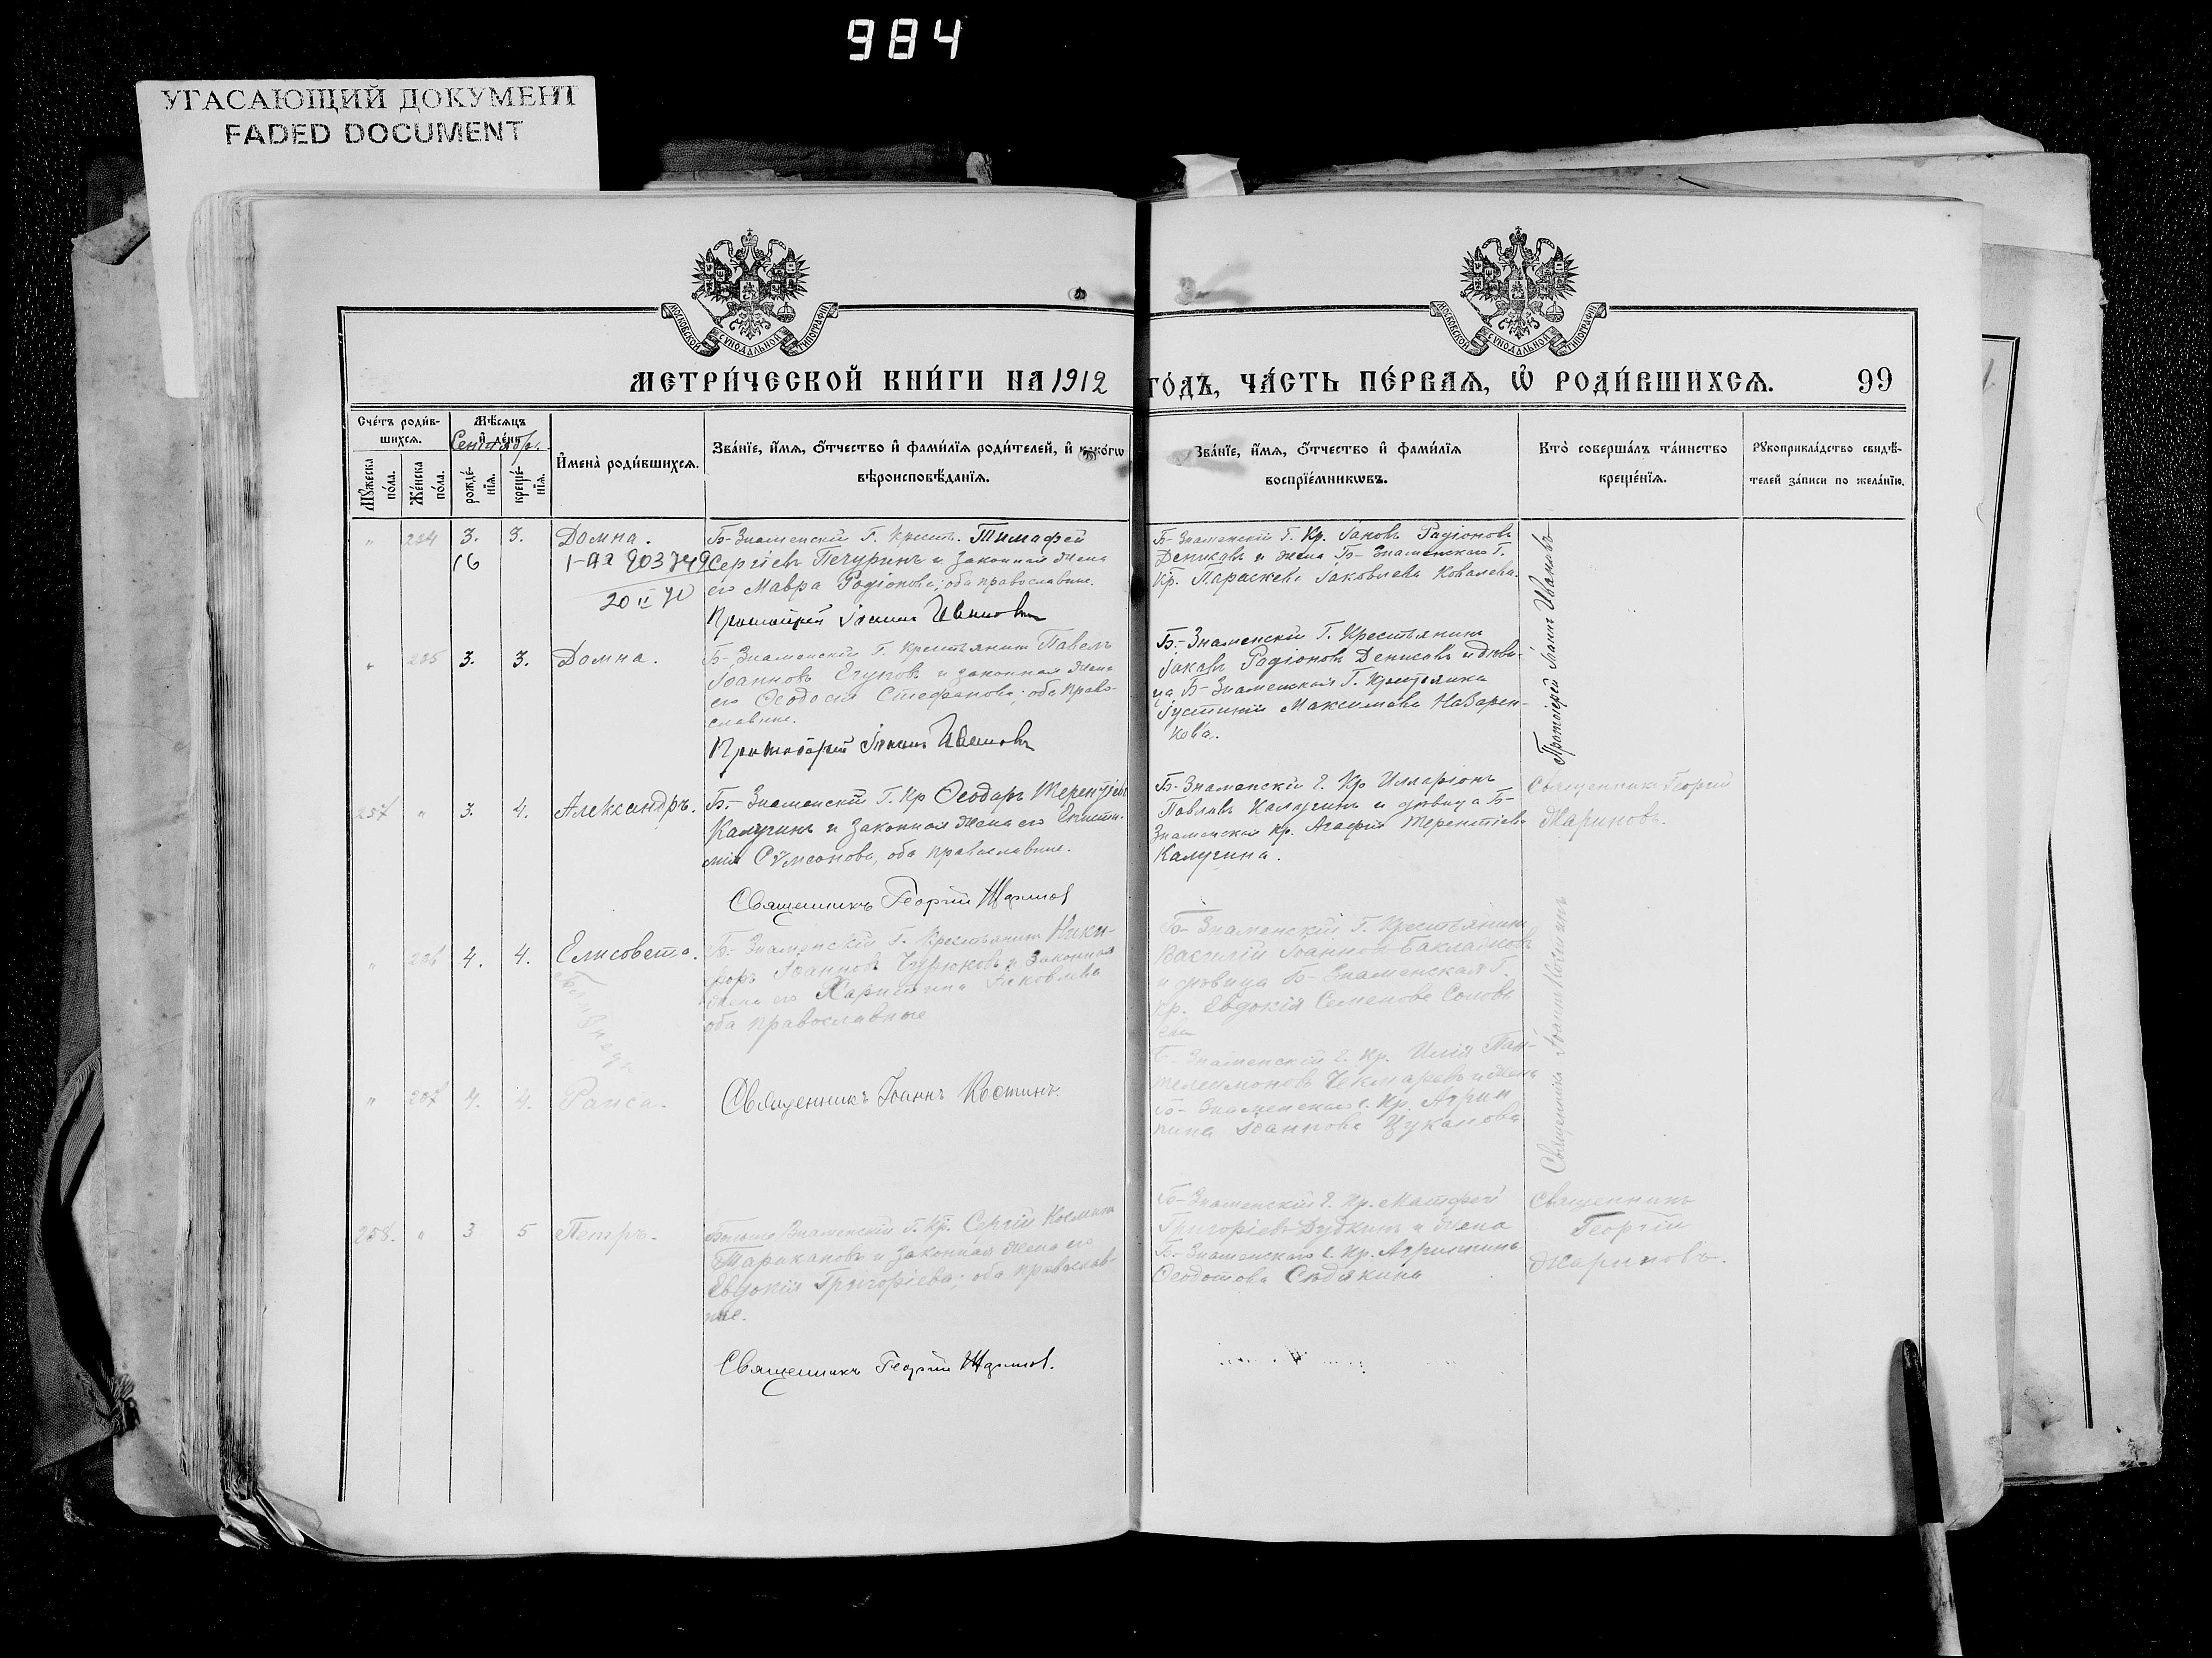 984
УГАСАЮЩИЙ ДОКУМЕНТ
FADED DOCUMENT
МОСКОВСКОЙ СѴНОДАЛЬНОЙ ТИПОГРАФІИ
МОСКОВСКОЙ СѴНОДАЛЬНОЙ ТИПОГРАФІИ
МЕТРИ́ЧЕСКОЙ КНИ́ГИ НА 1912 ГО́ДЪ, ЧА́СТЬ ПЕ́РВАЯ, Ѡ҆ РОДИ́ВШИХСЯ. 99
Сче́тъ роди́в-
шихся.
Мѣ́сяцъ
и҆ де́нь
Сентябрь.
Мꙋ́жеска
по́ла.
Же́нска
по́ла.
рожде́-
нїя.
креще́-
нїя.
И҆мена̀ роди́вшихся.
Зва́нїе, и҆́мя, ѻ҆́тчество и҆ фами́лїя роди́телей, и҆ како́гѡ
вѣроисповѣ́данїя.
Зва́нїе, и҆́мя, ѻ҆́тчество и҆ фами́лїя
воспрїе́мникѡвъ.
Кто̀ соверша́лъ та́инство
креще́нїя.
Рꙋкоприкла́дство свидѣ́-
телей за́писи по жела́нїю.
" 234 3. 3. Домна.
16
20 II 70
Б-Знаменскій Г. Крест. Тимофей
Сергіевъ Печуринъ и законная жена
его Мавра Родіонова; оба православные.
Протоіерей Іоаннъ Ивановъ
Б-Знаменскій Г. Кр. Іаковъ Родіоновъ
Денисовъ и жена Б-Знаменскаго Г.
Кр. Параскева Іаковлева Ковалева.
Протоіерей Іоаннъ Ивановъ
" 235 3. 3. Домна.
Б-Знаменскій Г. Крестьянинъ Павелъ
Іоанновъ Егуновъ и законная жена
его Ѳеодосія Стефанова; оба право-
славные.
Протоіерей Іоаннъ Ивановъ
Б-Знаменскій Г. Крестьянинъ
Іаковъ Родіоновъ Денисовъ и дѣви-
ца Б-Знаменская Г. Крестьянка
Іустинія Максимова Назарен-
кова.
257 " 3. 4. Александръ.
Б-Знаменскій Г. Кр Ѳеодоръ Терентіевъ
Калугинъ и законная жена его Еписти-
мія Сѵмеонова, оба православные.
Священникъ Георгій Жариновъ
Б-Знаменскій С. Кр Илларіонъ
Павловъ Калугинъ и дѣвица Б-
Знаменская Кр. Агафія Терентіева
Калугина.
Священникъ Георгій
Жариновъ.
" 236 4. 4. Елисовета.
Б-Знаменскій Г. Крестьянинъ Ники-
форъ Іоанновъ Чурюковъ и законная
жена его Харитина Іаковлева
оба православные
Б-Знаменскій Г. Крестьянинъ
Василій Іоанновъ Баклановъ
и дѣвица Б-Знаменская Г.
Кр. Евдокія Семенова Соловь
ева
Священникъ Іоаннъ Костинъ
" 237 4. 4. Раиса.
Священникъ Іоаннъ Костинъ.
Б-Знаменскій С. Кр. Илія Пан-
телеимоновъ Чекмаревъ и жена
Б-Знаменскаго С. Кр. Агрип
пина Іоаннова Цуканова
258. " 3 5 Петръ.
Больше Знаменскій Г. Кр. Сергій Космин
Таракановъ и законная жена его
Евдокія Григоріева; оба православ-
ные.
Священникъ Георгій Жариновъ.
Б-Знаменскій С. Кр. Матфей
Григоріевъ Дудкинъ и жена
Б-Знаменскаго С. Кр. Агриппина
Ѳеодотова Сѣдякина
Священникъ
Георгій
Жариновъ.